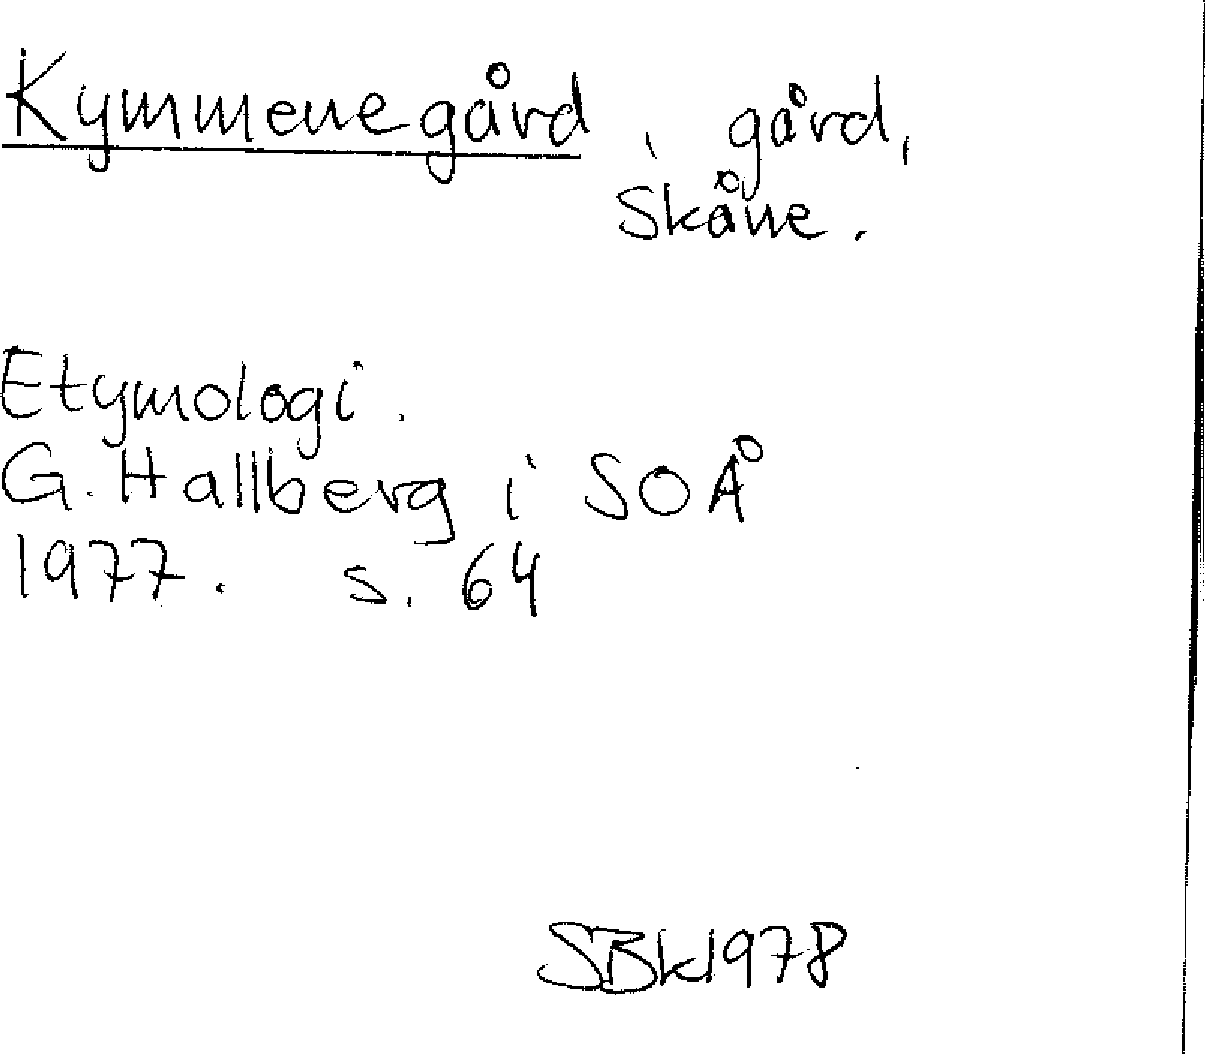 Kymmenegård, gård,
Skåne.
Etymologi.
G. Hallberg i SOÅ
1977. s. 64
SBk1978